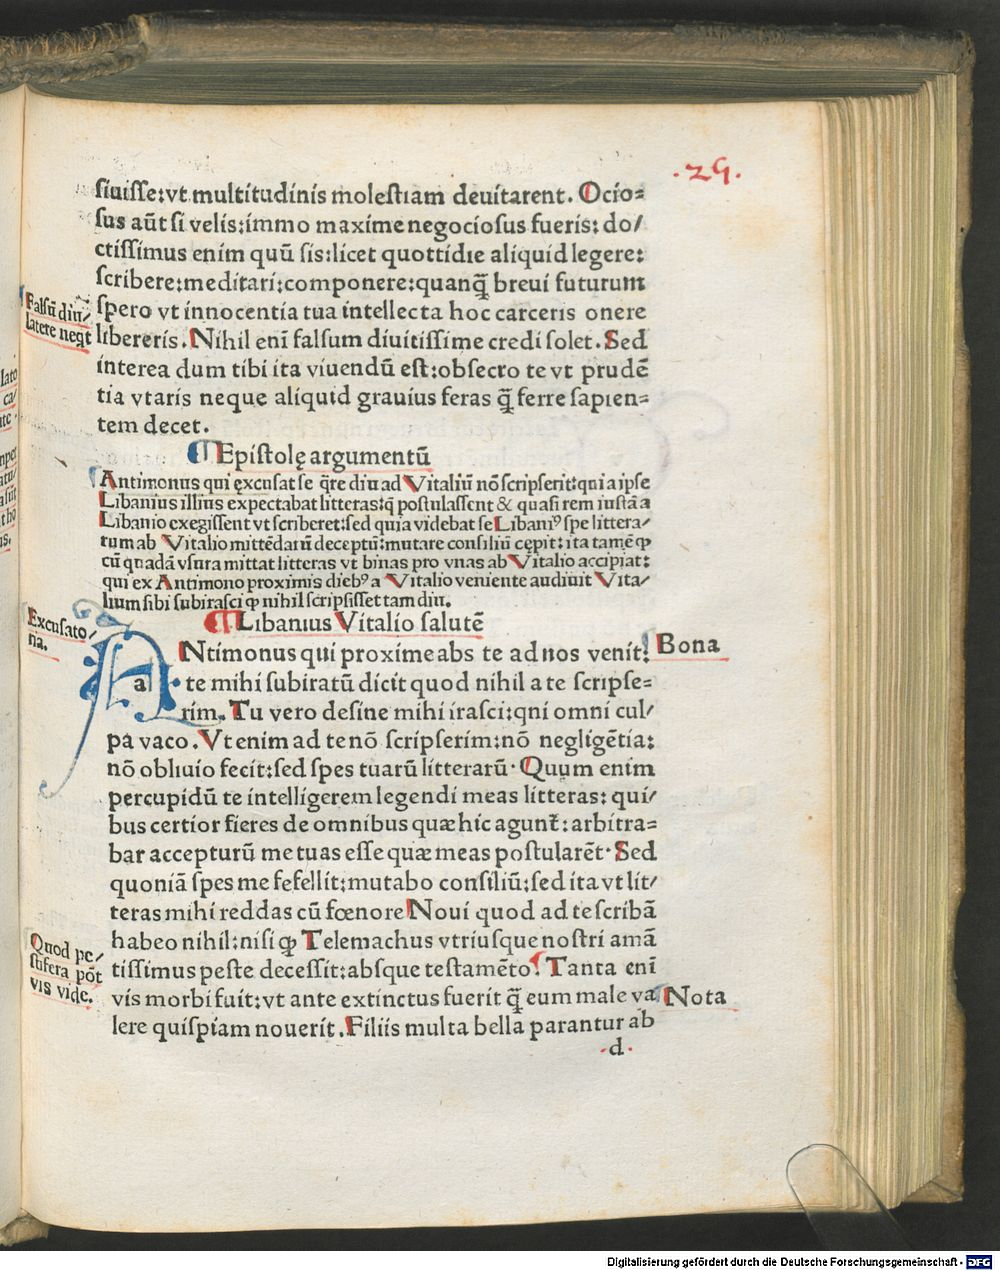 .29.
siuisse:vt multitudinis molestiam deuitarent. Ocio=
sus aūt si velis:immo maxime negociosus fueris: do/
ctissimus enim quū sis:licet quottidie aliquid legere:
scribere:meditari:componere:quanq̄ breui futurum
Falsū diu/
latere neqt
spero vt innocentia tua intellecta hoc carceris onere
libereris. Nihil enī falsum diuitissime credi solet. Sed
interea dum tibi ita viuendū est:obsecro te vt prudē
tia vtaris neque aliquid grauius feras q̄ ferre sapien=
tem decet.
¶ Epistolę argumentū
Antimonus qui ęxcusat se q̄re diu ad Vitaliū nō scripserit:qui a ipse
Libanius illius expectabat litteras:q̄ postulassent & quasi rem iustā a
Libanio exegissent vt scriberet:sed quia videbat se Libaniꝰ spe littera/
rum ab Vitalio mittēdarū deceptū:mutare consiliū cępit: ita tamē ꝙ
cū quadā vsura mittat litteras vt binas pro vnas ab Vitalio accipiat:
qui ex Antimono proximis diebꝰ a Vitalio veniente audiuit Vita/
lium sibi subirasci ꝙ nihil scripsisset tam diu.
¶ Libanius Vitalio salutē
Excusato/
ria.
a NTimonus qui proxime abs te ad nos venit:
Bona
te mihi subiratū dicit quod nihil a te scripse=
rim. Tu vero desine mihi irasci:qni omni cul/
pa vaco. Vt enim ad te nō scripserim:nō negligētia:
nō obliuio fecit:sed spes tuarū litterarū. Quum enim
percupidū te intelligerem legendi meas litteras: qui/
bus certior fieres de omnibus quæ hic agunt̄: arbitra=
bar accepturū me tuas esse quæ meas postularēt. Sed
quoniā spes me fefellit:mutabo consiliū:sed ita vt lit/
teras mihi reddas cū fœnore Noui quod ad te scribā
habeo nihil:nisi ꝙ Telemachus vtriusque nostri amā
Quod pe/
stifera pōt
vis vide.
tissimus peste decessit:absque testamēto. Tanta enī
vis morbi fuit:vt ante extinctus fuerit q̄ eum male va
Nota
lere quispiam nouerit. Filiis multa bella parantur ab
.d.
lato
ca/
Digitalisierung gefördert durch die Deutsche Forschungsgemeinschaft - DFG